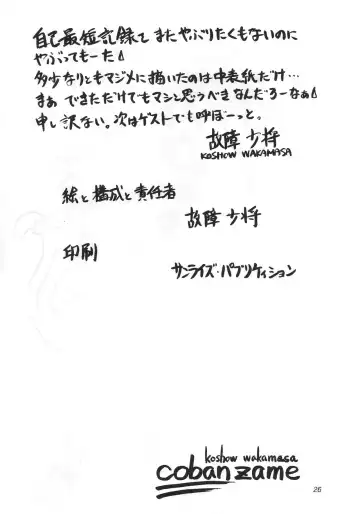 自己最短記録て またやぶりたくもないのに
やぶってもーた
多少なりともマジメに描いたのは中表紙だけ…
まぁ できただけでもマシと思うべきなんだろーなぁ
申し訳ない。次はゲストでも呼ぼーっと。
故障少将
KOSHOW WAKAMASA
絵と構成と責任者
故障少将
印刷
サンライズ・パブリケイション
koshow wakamasa
cobanzame
26